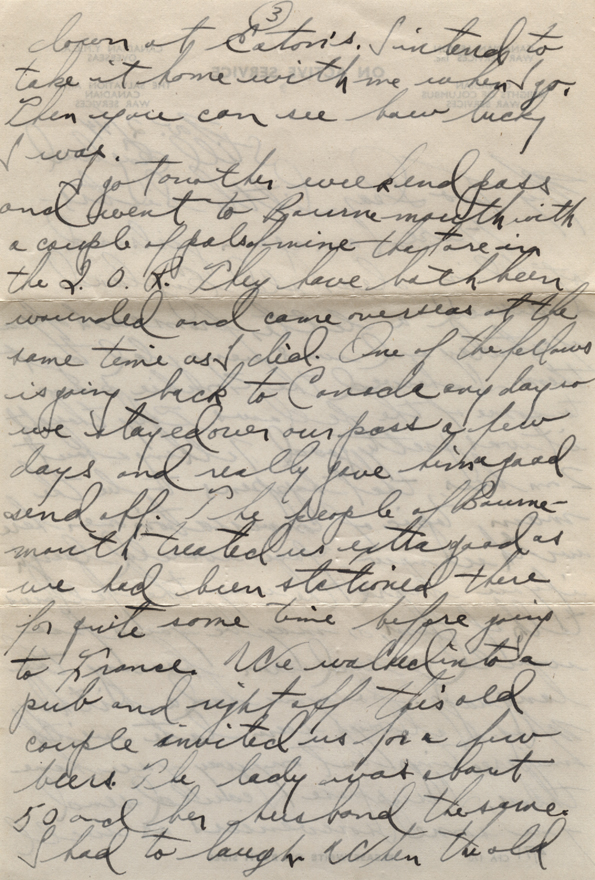 3
down at Eaton's. I intend to
take it home with me when I go.
Then you can see how lucky
I was.
I got another weekend pass
and went to Bournemouth with
a couple of pals of mine they are in
the Q. O. R. They have both been
wounded and came overseas at the
same time as I did. One of the fellows
is going back to Canada any day so
we stayed over our pass a few
days and really gave him a good
send off. The people of Bourne-
mouth treated us extra good as
we had been stationed there
for quite some time before going
to France. We walked into a
pub and right off this old
couple invited us for a few
beers. The lady was about
50 and her husband the same.
I had to laugh. When the old